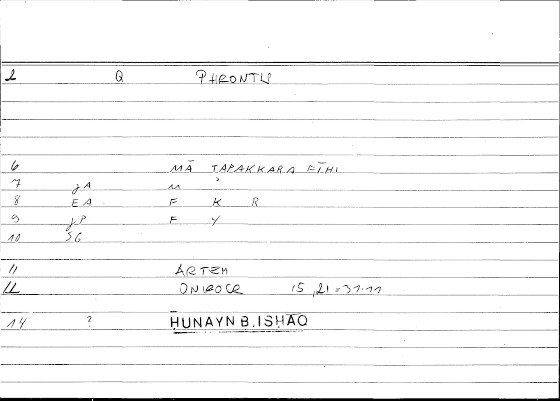 2 Q PHRONTIS
6 MĀ TAFAKKARA FĪHI
7 jA M
8 EA F K R
9 jP F Y
10 SG
11 ARTEM
12 ONIROCR 15,21=31.11
14 ? ḤUNAYN B. ISḤAQ